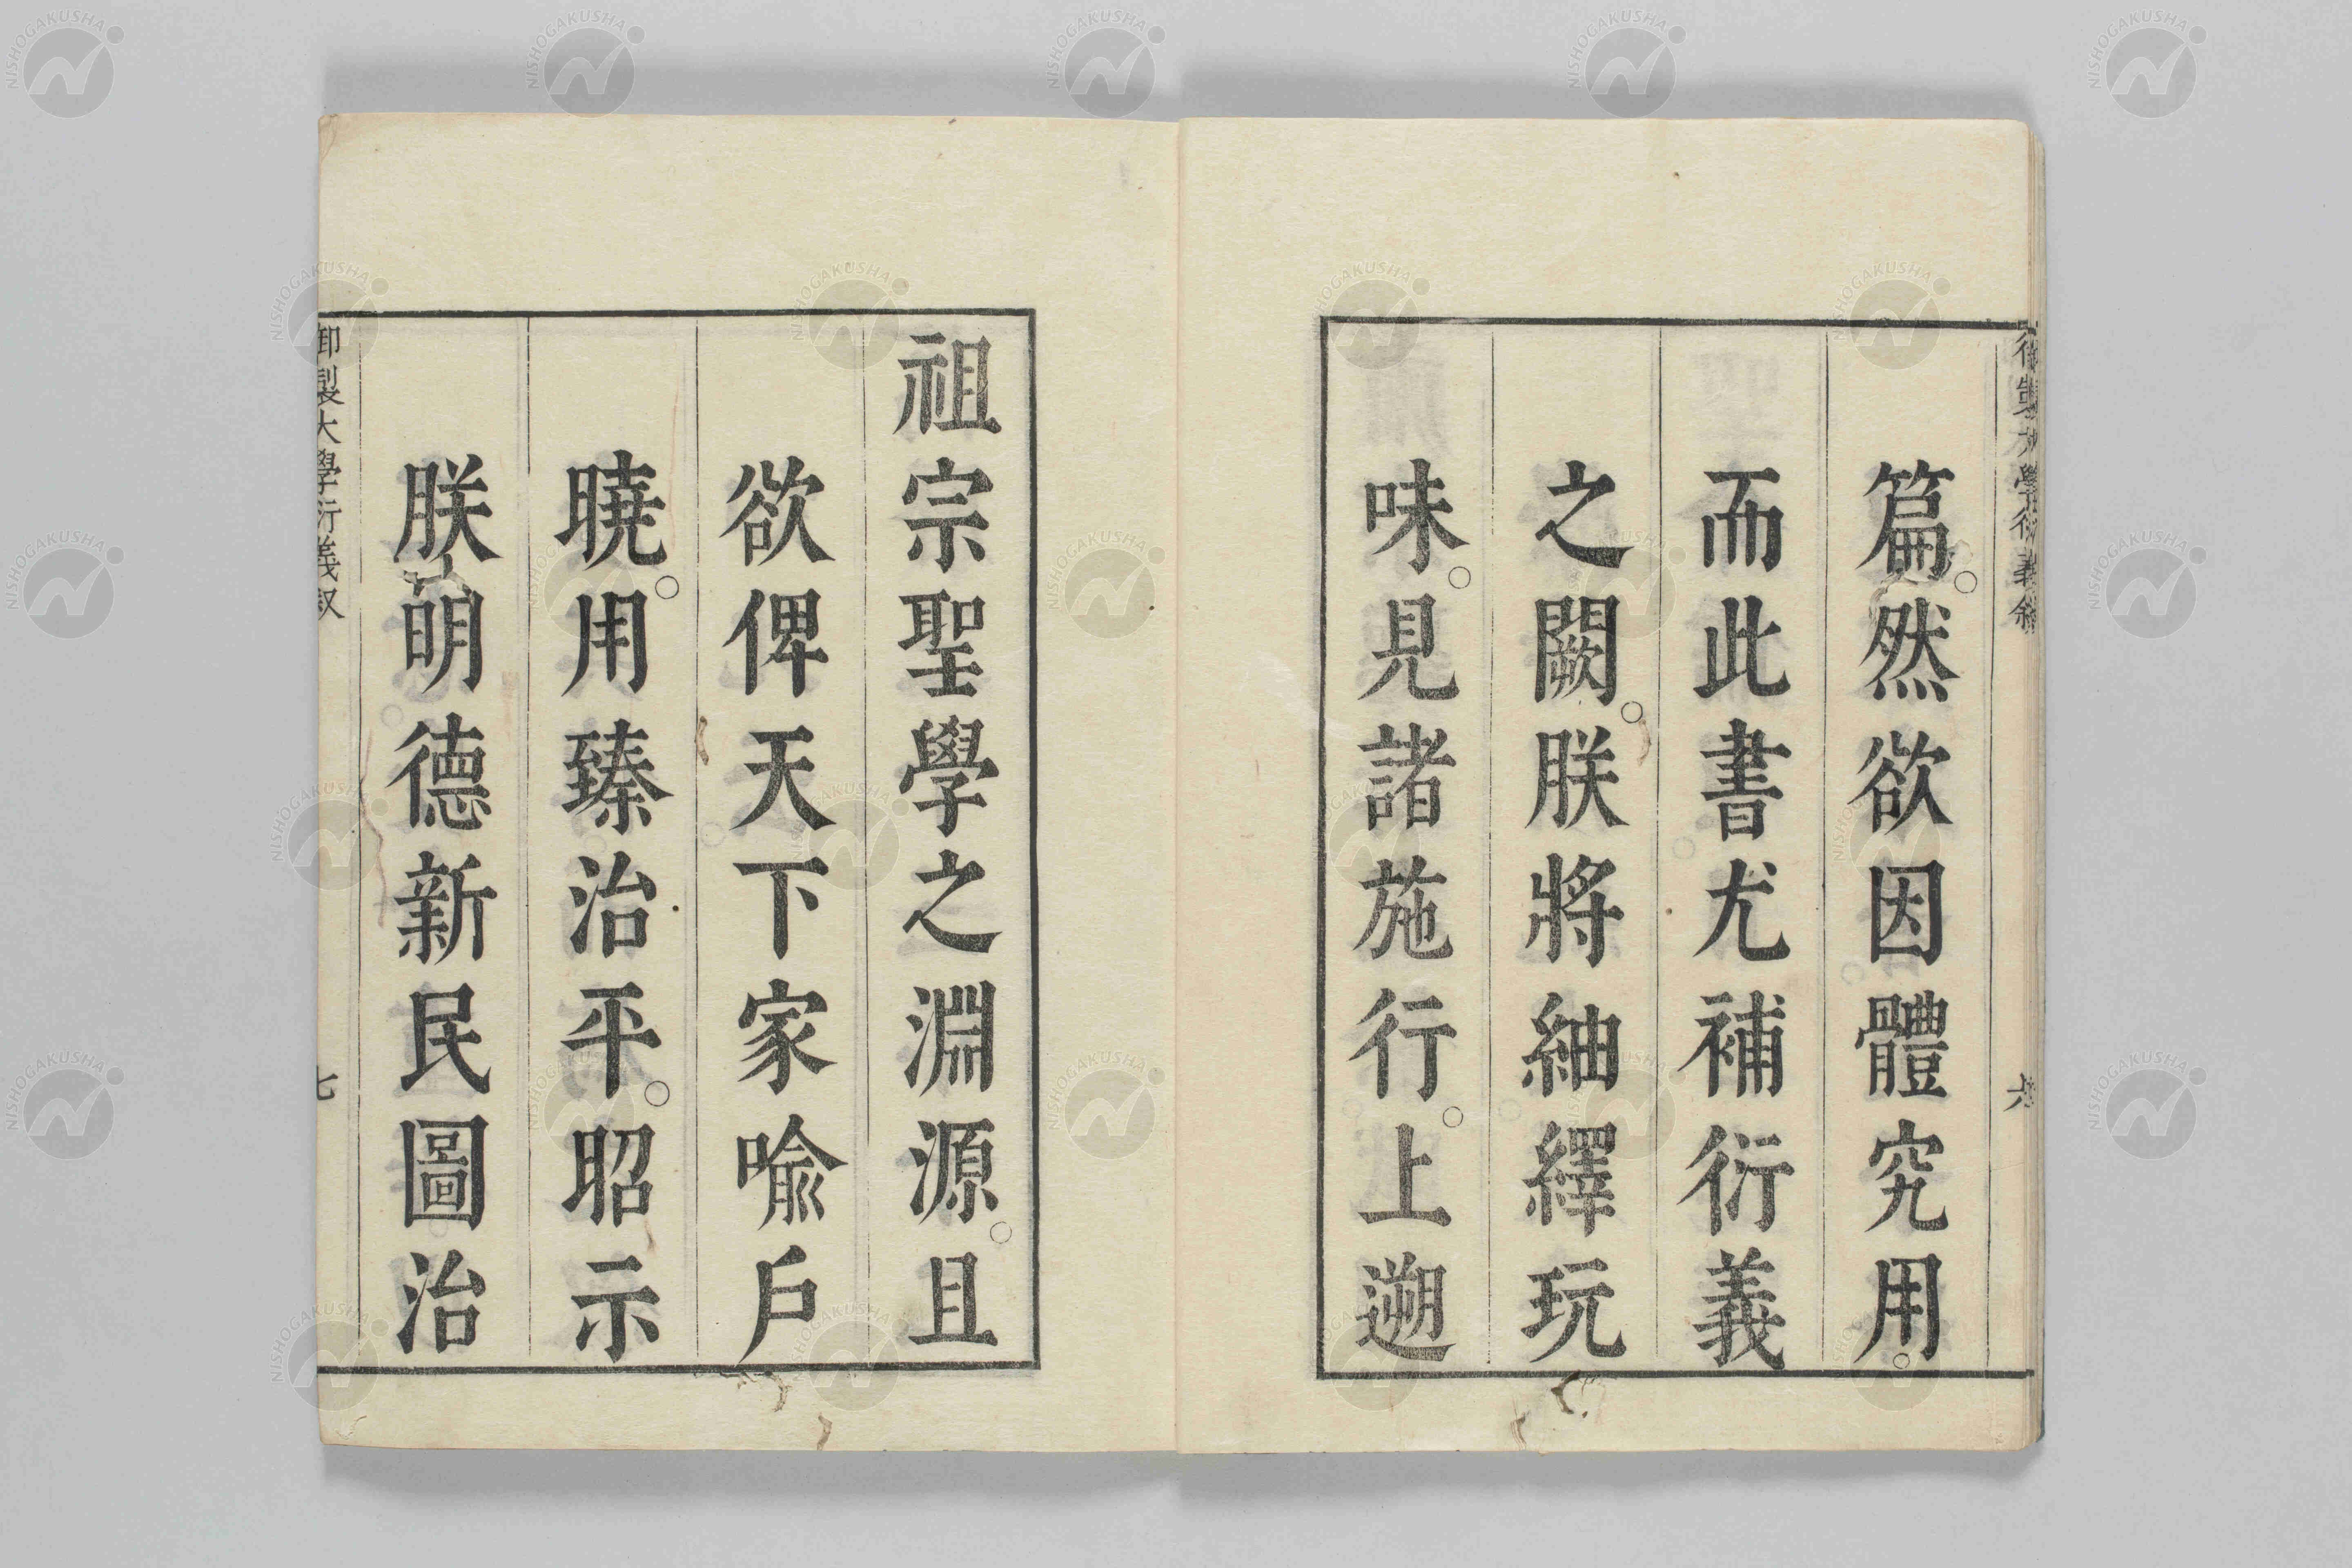 篇。然欲因體究用。
而此書尤補衍義
之闕。朕將紬繹玩
味。見諸施行。上遡
祖宗聖學之淵源。且
欲俾天下家喩戶
曉。用臻治平。昭示
朕明德新民圖治
御製大學衍義叙
七
NISHOGAKUSHA